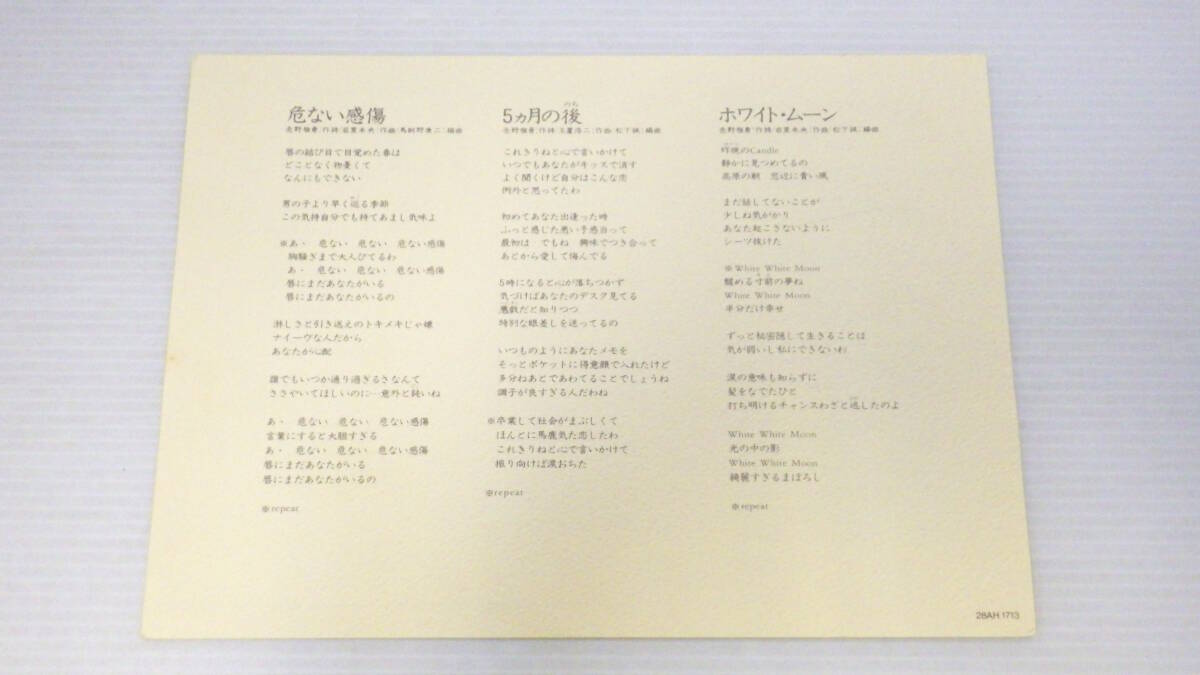 危ない感傷
売野雅勇/作詩・岩里未央/作曲・馬飼野康二/編曲
唇の結び目で目覚めた春は
どことなく物憂くて
なんにもできない
男の子より早く巡る季節
この気持自分でも持てあまし気味よ
※あ・ 危ない 危ない 危ない感傷
胸騒ぎまで大人びてるわ
あ・ 危ない 危ない 危ない感傷
唇にまだあなたがいる
唇にまだあなたがいるの
淋しさと引き返えのトキメキじゃ嫌
ナイーヴなんだから
あなたが心配
誰でもいつか通り過ぎるさなんて
ささやいてほしいのに…意外と鈍いね
あ・ 危ない 危ない 危ない感傷
言葉にすると大胆すぎる
あ・ 危ない 危ない 危ない感傷
唇にまだあなたがいる
唇にまだあなたがいるの
※repeat
5ヵ月の後
のち
売野雅勇/作詩・玉置浩二/作曲・松下誠/編曲
これきりねと心で言いかけて
いつでもあなたがキッスで消す
よく聞くけど自分はこんな恋
例外と思ってたわ
初めてあなた出逢った時
ふっと感じた悪い予感当って
最初は でもね 興味でつき合って
あとから愛して悔んでる
5時になると心が落ちつかず
気づけばあなたのデスク見てる
悪戯だと知りつつ
特別な眼差しを送ってるの
いつものようにあなたメモを
そっとポケットに得意顔で入れたけど
多分ねあとであわてることでしょうね
調子が良すぎる人だわね
※卒業して社会がまぶしくて
ほんとに馬鹿気た恋したわ
これきりねと心で言いかけて
振り向けば涙おちた
※repeat
ホワイト・ムーン
売野雅勇/作詩・岩里未央/作曲・松下誠/編曲
昨晩のCandle
静かに見つめてるの
高原の朝 窓辺に青い風
まだ話してないことが
少しね気がかり
あなた起こさないように
シーツ抜けた
※White White Moon
醒める寸前の夢ね
White White Moon
半分だけ幸せ
ずっと秘密隠して生きることは
気が弱いし私にできないわ
涙の意味も知らずに
髪をなでたひと
打ち明けるチャンスわざと逃したのよ
White White Moon
光の中の影
White White Moon
綺麗すぎるまぼろし
※repeat
28AH 1713